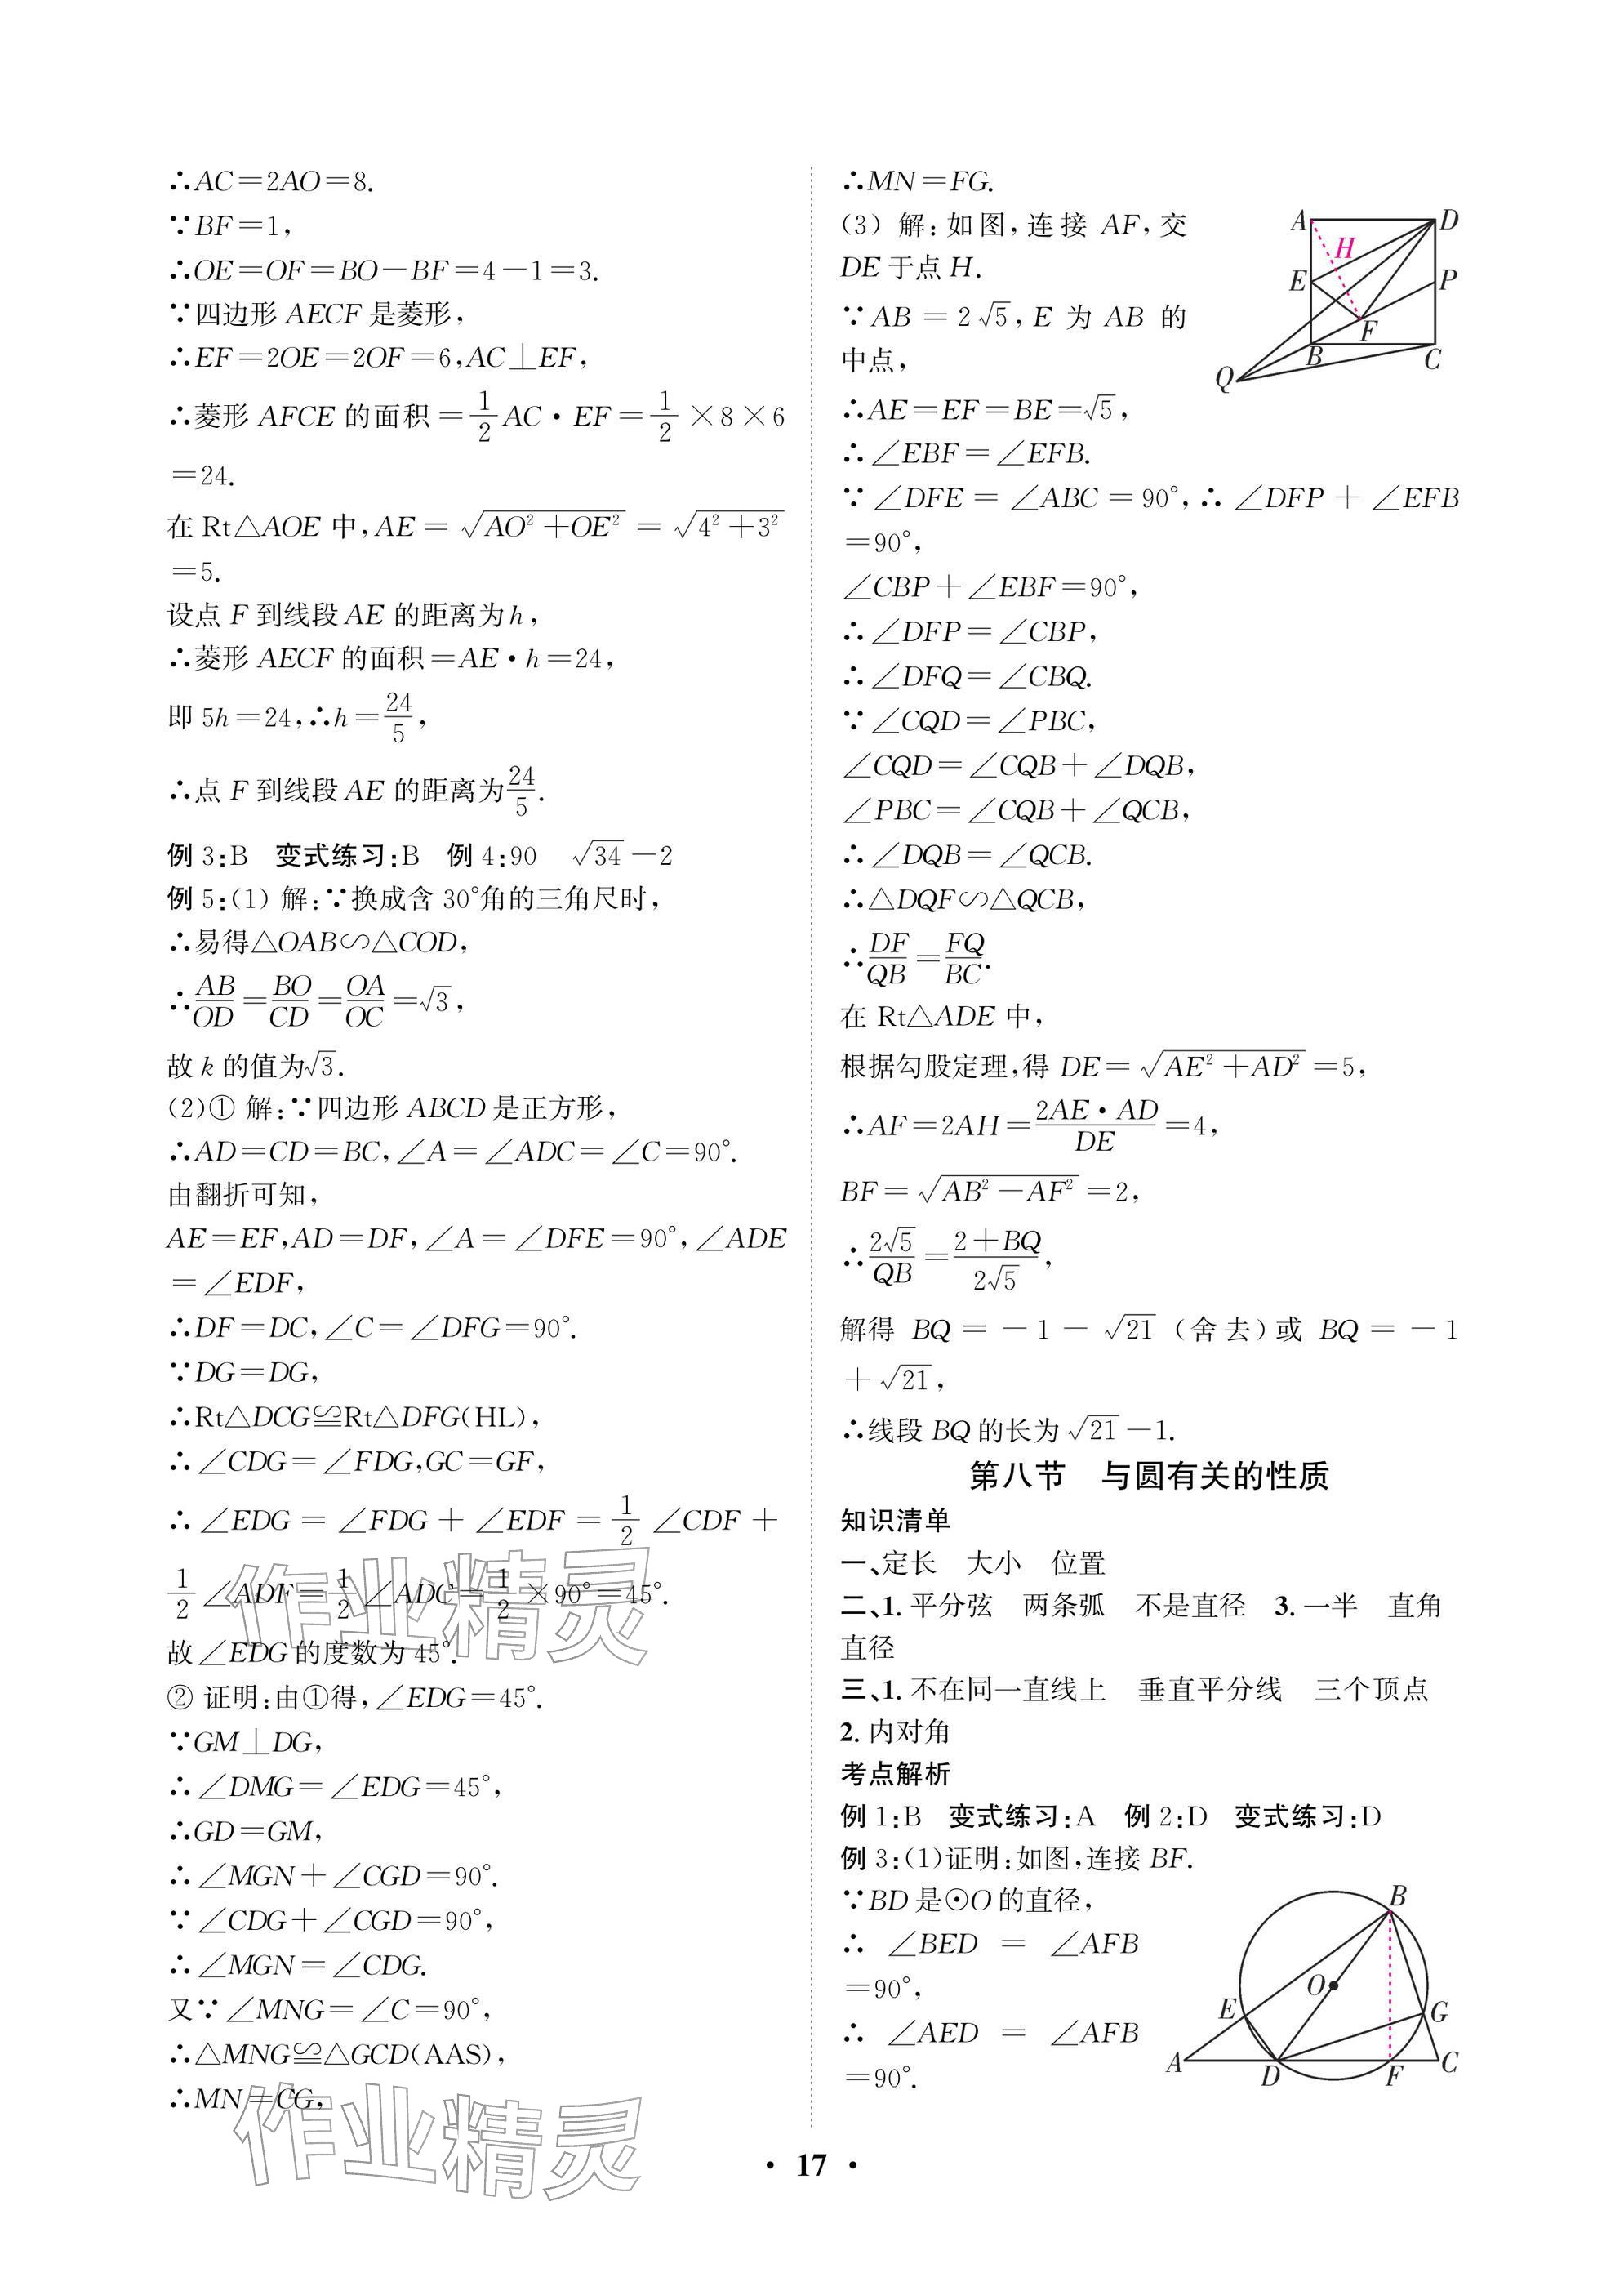 ∴AC=2AO=8.
∵BF=1,
∴OE=OF=BO-BF=4-1=3.
∵四边形AECF是菱形,
∴EF=2OE=2OF=6,AC⊥EF,
∴菱形AFCE的面积=1/2 AC·EF=1/2×8×6
=24.
在Rt△AOE中,AE=√(AO²+OE²)=√(4²+3²)
=5.
设点F到线段AE的距离为h,
∴菱形AECF的面积=AE·h=24,
即5h=24,∴h=24/5,
∴点F到线段AE的距离为24/5.
例3:B 变式练习:B 例4:90 √34-2
例5:(1)解:∵换成含30°角的三角尺时,
∴易得△OAB∽△COD,
∴AB/OD=BO/CD=OA/OC=√3,
故k的值为√3.
(2)①解:∵四边形ABCD是正方形,
∴AD=CD=BC,∠A=∠ADC=∠C=90°.
由翻折可知,
AE=EF,AD=DF,∠A=∠DFE=90°,∠ADE
=∠EDF,
∴DF=DC,∠C=∠DFG=90°.
∵DG=DG,
∴Rt△DCG≌Rt△DFG(HL),
∴∠CDG=∠FDG,GC=GF,
∴∠EDG=∠FDG+∠EDF=1/2∠CDF+
1/2∠ADF=1/2∠ADC=1/2×90°=45°.
故∠EDG的度数为45°.
②证明:由①得,∠EDG=45°.
∵GM⊥DG,
∴∠DMG=∠EDG=45°,
∴GD=GM,
∴∠MGN+∠CGD=90°.
∵∠CDG+∠CGD=90°,
∴∠MGN=∠CDG.
又∵∠MNG=∠C=90°,
∴△MNG≌△GCD(AAS),
∴MN=CG,
∴MN=FG.
(3)解:如图,连接AF,交
DE于点H.
∵AB=2√5,E为AB的
中点,
∴AE=EF=BE=√5,
∴∠EBF=∠EFB.
∵∠DFE=∠ABC=90°,∴∠DFP+∠EFB
=90°,
∠CBP+∠EBF=90°,
∴∠DFP=∠CBP,
∴∠DFQ=∠CBQ.
∵∠CQD=∠PBC,
∠CQD=∠CQB+∠DQB,
∠PBC=∠CQB+∠QCB,
∴∠DQB=∠QCB.
∴△DQF∽△QCB,
∴DF/QB=FQ/BC.
在Rt△ADE中,
根据勾股定理,得DE=√(AE²+AD²)=5,
∴AF=2AH=2AE·AD/DE=4,
BF=√(AB²-AF²)=2,
∴2√5/QB=(2+BQ)/2√5,
解得BQ=-1-√21(舍去)或BQ=-1
+√21,
∴线段BQ的长为√21-1.
A
D
H
E
P
F
B
C
Q
第八节 与圆有关的性质
知识清单
一、定长 大小 位置
二、1.平分弦 两条弧 不是直径 3.一半 直角
直径
三、1.不在同一直线上 垂直平分线 三个顶点
2.内对角
考点解析
例1:B 变式练习:A 例2:D 变式练习:D
例3:(1)证明:如图,连接BF.
∵BD是⊙O的直径,
∴∠BED=∠AFB
=90°,
∴∠AED=∠AFB
=90°.
B
O
E
G
A
D
F
C
作业精灵
作业精灵
·17·